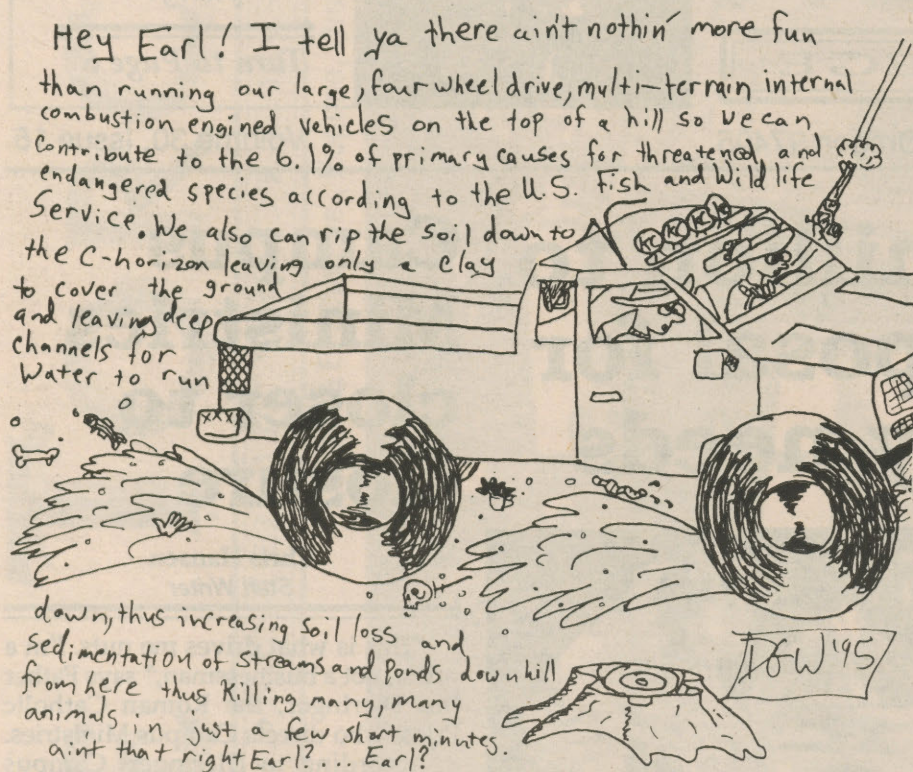 Hey Earl! I tell ya there ain't nothin' more fun
than running our large, four wheel drive, multi-terrain internal
combustion engined vehicles on the top of a hill so we can
contribute to the 6.1% of primary causes for threatened, and
endangered species according to the U.S. Fish and Wild life
Service. We also can rip the soil down to
the C-horizon leaving only a clay
to cover the ground
and leaving deep
channels for
Water to run
KC KC KC KC
XXXX
down, thus increasing soil loss and
sedimentation of streams and ponds downhill
from here thus killing many, many
animals in just a few short minutes.
aint that right Earl? ... Earl?
DGW '95